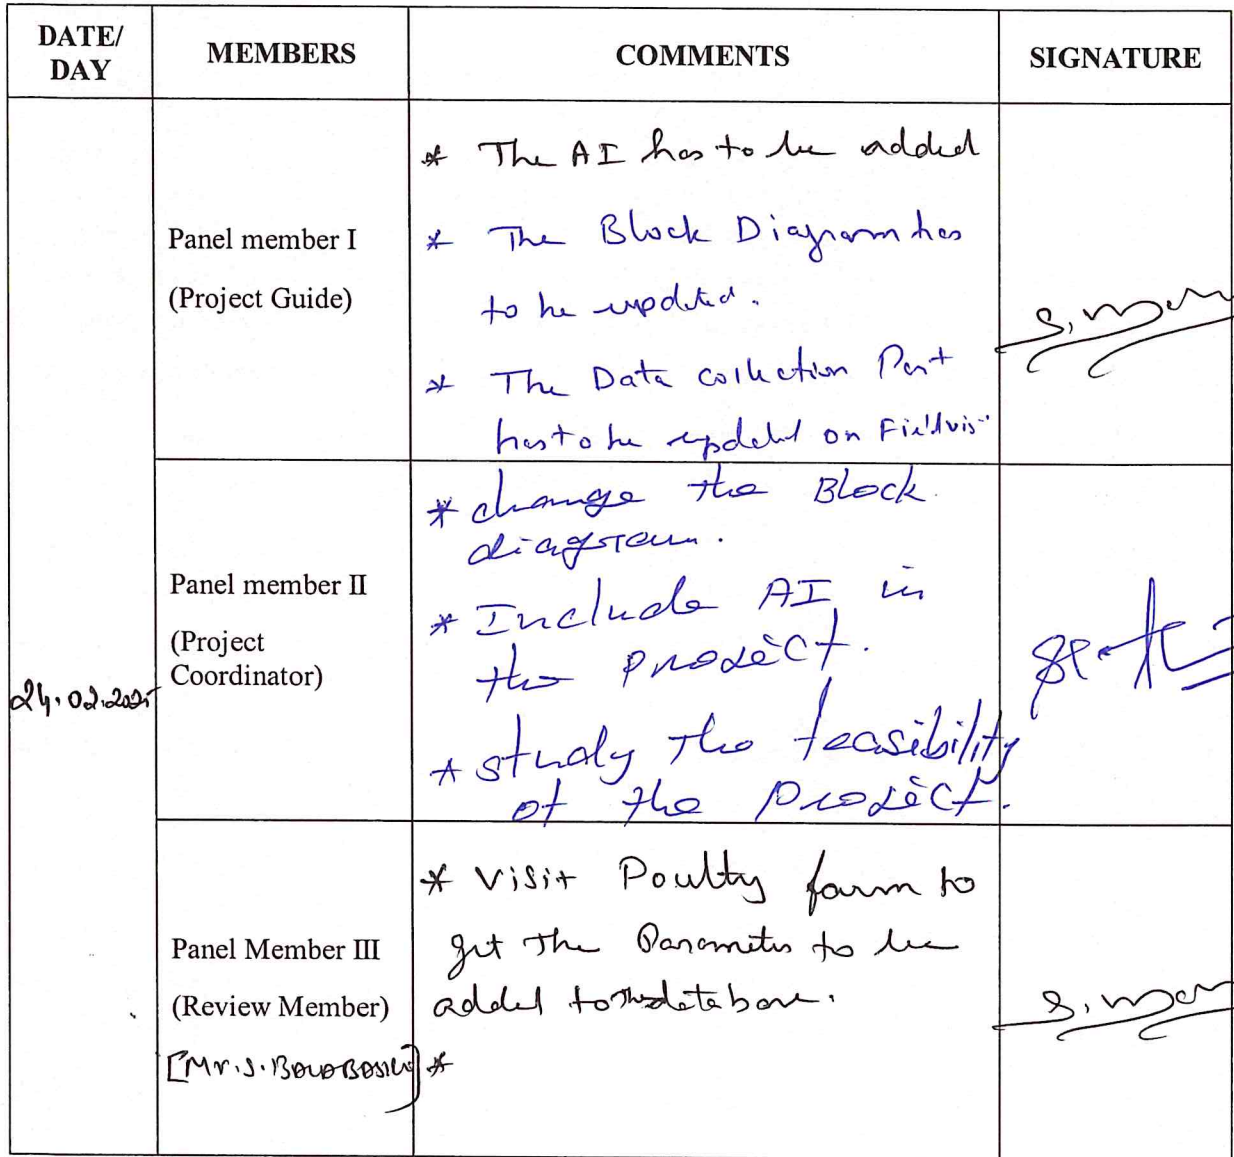 DATE/
DAY
MEMBERS
COMMENTS
SIGNATURE
24.02.2025
Panel member I
(Project Guide)
* The AI has to be added
* The Block Diagram has
to be updated.
* The Data collection Part
has to be updated on Fieldvisit
Panel member II
(Project
Coordinator)
* change the Block
diagram.
* Include AI in
the project.
* study the feasibility
of the project.
Panel Member III
(Review Member)
[Mr.S.
* Visit Poultry farm to
get the Parameters to be
added to the database.
*